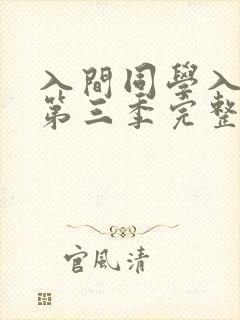 入間同學入
第三季完整
官風清